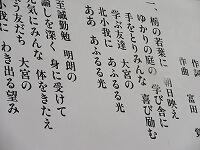 作詞 富田
作曲
一、栃の若葉に 朝日映え
ゆかりの庭の 学び舎に
手をとりみんな 喜び励む
学ぶ友達 大宮の
北小我に あふるる光
ああ あふるる光
至誠勤勉 明朗の
諭しを深く 身に受けて
元気にみんな 体をきたえ
う友だち 大宮の
小我に わき出る望み